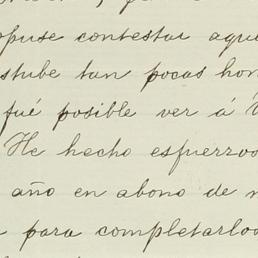 puse contestar aque
stube tan pocas hor
fué posible ver á
He hecho esfuerzos
año en abono de
para completarlos